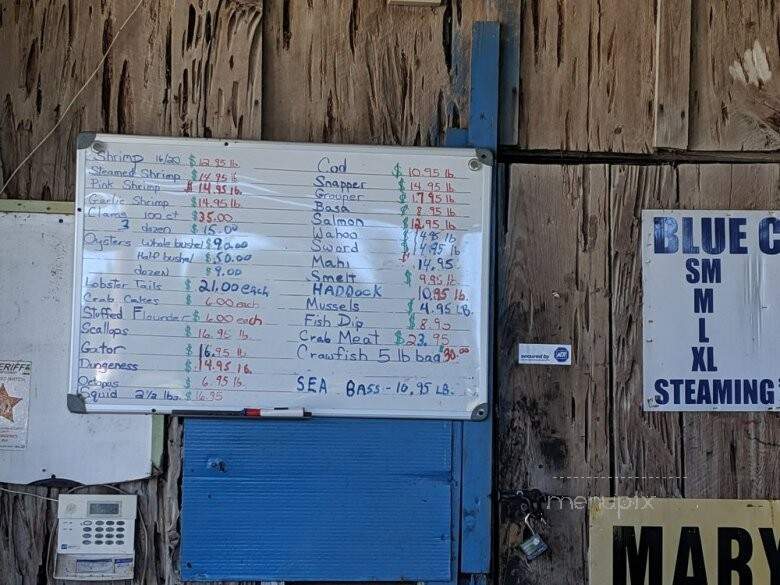 Shrimp 16/20 $12.95 lb
Steamed Shrimp $14.95 lb
Pink Shrimp $14.95 lb.
Garlic Shrimp $14.95 lb.
Clams 100 ct $35.00
3 dozen $15.00
Oysters whole bushel $90.00
Half bushel $50.00
dozen $9.00
Lobster Tails $21.00 each
Crab Cakes $6.00 each
Stuffed Flounder $6.00 each
Scallops $16.95 lb.
Gator $16.95 lb
Dungeness $14.95 lb
Octopus $6.95 lb.
Squid 2½ lbs. $16.95
Cod $10.95 lb
Snapper $14.95 lb
Grouper 17.95 lb
Basa $8.95 lb
Salmon $12.95 lb
Wahoo 14.95 lb
Sword $14.95 lb
Mahi 14.95
Smelt $9.95 lb
HADDOCK 10.95 lb.
Mussels $4.95 LB.
Fish Dip $8.95
Crab Meat $23.95
Crawfish 5 lb bag $30.00
SEA BASS - 10.95 LB.
BLUE C
SM
M
L
XL
STEAMING
secured by ADT
menupix
MARY